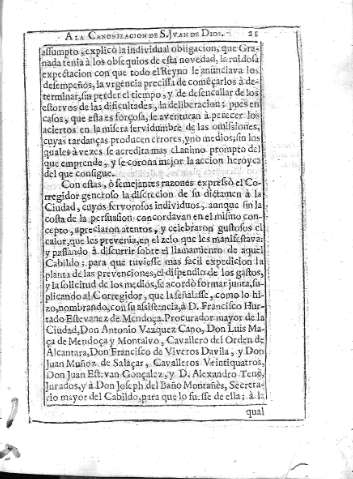 A LA CANONIZACION DE S. JVAN DE DIOS. 25
assumpto, explicó la individual obligacion, que Gra-
nada tenia à los obsequios de esta novedad, la ruidosa
expectacion con que todo el Reyno le anunciava los
desempeños, la vrgencia precissa de começarlos à de-
terminar, sin perder el tiempo, y de desencallar de los
estorvos de las dificultades, la deliberacion; pues en
casos, que esta es forçosa, se aventuran à perecer los
aciertos en la misera servidumbre de las omissiones,
cuyas tardanças producen errores, y no medios; sin los
quales à vezes se acredita mas el animo prompto del
que emprende, y se corona mejor la accion heroyca
del que consigue.
Con estas, ò semejantes razones expressò el Co-
rregidor generoso la discrecion de su dictamen à la
Ciudad, cuyos fervorosos individuos, aunque sin la
costa de la persuasion concordavan en el mismo con-
cepto, apreciaron atentos, y celebraron gustosos el
calor, que les prevenia, en el zelo que les manifestava:
y passando à discurrir sobre el llamamiento de aquel
Cabildo: para que tuviesse mas facil expedicion la
planta de las prevenciones, el dispendio de los gastos,
y la solicitud de los medios, se acordò formar junta, su-
plicando al Corregidor, que la señalasse, como lo hi-
zo, nombrando, con su asistencia, à D. Francisco Hur-
tado Estevanez de Mendoça, Procurador mayor de la
Ciudad, Don Antonio Vazquez Cano, Don Luis Ma-
ça de Mendoça y Montalvo, Cavallero del Orden de
Alcantara, Don Francisco de Viveros Davila, y Don
Juan Muñoz de Salaçar, Cavalleros Veintiquatros,
Don Juan Estevan Gonçalez, y D. Alexandro Tene,
Jurados, y à Don Joseph del Baño Montañès, Secreta-
rio mayor del Cabildo, para que lo fuesse de ella; à la
qual